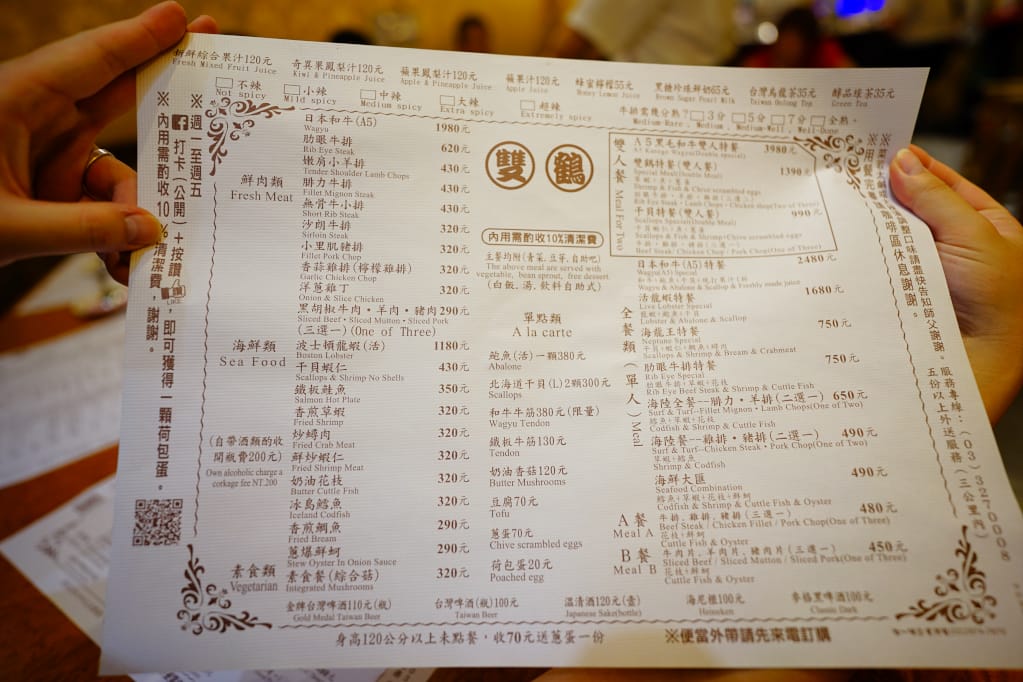 新鮮綜合果汁120元
Fresh Mixed Fruit Juice
奇異果鳳梨汁120元
Kiwi & Pineapple Juice
蘋果鳳梨汁120元
Apple & Pineapple Juice
蘋果汁120元
Apple Juice
蜂蜜檸檬55元
Honey Lemon Juice
黑糖珍珠鮮奶65元
Brown Sugar Pearl Milk
台灣烏龍茶35元
Taiwan Oolong Tea
醇品綠茶35元
Green Tea
不辣
Not spicy
小辣
Mild spicy
中辣
Medium spicy
大辣
Extra spicy
超辣
Extremely spicy
牛排需幾分熟？ 3分 5分 7分 全熟。
Medium-Rare, Medium, Medium-Well, Well-Done
※週一至週五
打卡(公開)+按讚 LIKE,即可獲得一顆荷包蛋。
※內用需酌收10%清潔費,謝謝。
鮮肉類
Fresh Meat
日本和牛(A5) 1980元
Wagyu
肋眼牛排 620元
Rib Eye Steak
嫩肩小羊排 430元
Tender Shoulder Lamb Chops
腓力牛排 430元
Fillet Mignon Steak
無骨牛小排 430元
Short Rib Steak
沙朗牛排 430元
Sirloin Steak
小里肌豬排 320元
Fillet Pork Chop
香蒜雞排(檸檬雞排) 320元
Garlic Chicken Chop
洋蔥雞丁 320元
Onion & Slice Chicken
黑胡椒牛肉・羊肉・豬肉 290元
Sliced Beef・Sliced Mutton・Sliced Pork
(三選一)(One of Three)
海鮮類
Sea Food
波士頓龍蝦(活) 1180元
Boston Lobster
干貝蝦仁 430元
Scallops & Shrimp No Shells
鐵板鮭魚 350元
Salmon Hot Plate
香煎草蝦 320元
Fried Shrimp
炒蟳肉 320元
Fried Crab Meat
鮮炒蝦仁 320元
Fried Shrimp Meat
奶油花枝 320元
Butter Cuttle Fish
冰島鱈魚 320元
Iceland Codfish
香煎鯛魚 290元
Fried Bream
蔥爆鮮蚵 290元
Stew Oyster In Onion Sauce
(自帶酒類酌收
開瓶費200元)
Own alcoholic charge a
corkage fee NT.200
素食類
Vegetarian
素食餐(綜合菇) 320元
Integrated Mushrooms
雙鶴
內用需酌收10%清潔費
主餐均附(青菜.豆芽.自助吧)
The above meal are served with
vegetable, bean sprout, free dessert
(白飯.湯.飲料自助式)
單點類
A la carte
鮑魚(活)一顆380元
Abalone
北海道干貝(L)2顆300元
Scallops
和牛牛筋380元(限量)
Wagyu Tendon
鐵板牛筋130元
Tendon
奶油香菇120元
Butter Mushrooms
豆腐70元
Tofu
蔥蛋70元
Chive scrambled eggs
荷包蛋20元
Poached egg
雙人餐 Meal For Two
A5黑毛和牛雙人特餐 3980元
雙鶴特餐(雙人餐) 1390元
Special Meal(Double Meal)
Shrimp & Fish & Chive scrambled eggs
Rib Eye Steak・Lamb Chops・Chicken Chop(Two of Three)
干貝特餐(雙人餐) 990元
Scallops Special(Double Meal)
Scallops & Fish & Shrimp+Chive scrambled eggs
Beef Steak/Chicken Chop/Pork Chop(One of Three)
全餐類(單人)Meal
日本和牛(A5)特餐 2480元
Wagyu(A5) Special
Wagyu & Abalone & Scallop & Freshly made juice
活龍蝦特餐 1680元
Live Lobster Special
龍蝦+鮑魚+干貝
Lobster & Abalone & Scallop
海龍王特餐 750元
Neptune Special
干貝+蝦仁+鯛魚+蟳肉
Scallops & Shrimp & Bream & Crabmeat
肋眼牛排特餐 750元
Rib Eye Special
肋眼牛排+草蝦+花枝
Rib Eye Beef Steak & Shrimp & Cuttle Fish
海陸全餐--腓力・羊排(二選一) 650元
Surf & Turf--Fillet Mignon・Lamb Chops(One of Two)
鱈魚+草蝦+花枝
Codfish & Shrimp & Cuttle Fish
海陸餐--雞排・豬排(二選一) 490元
Surf & Turf--Chicken Steak・Pork Chop(One of Two)
草蝦+鱈魚
Shrimp & Codfish
海鮮大匯 490元
Seafood Combination
鱈魚+草蝦+花枝+鮮蚵
Codfish & Shrimp & Cuttle Fish & Oyster
A餐
Meal A
牛排.雞排.豬排(三選一) 480元
Beef Steak / Chicken Fillet / Pork Chop(One of Three)
花枝+鮮蚵
Cuttle Fish & Oyster
B餐
Meal B
牛肉片.羊肉片.豬肉片(三選一) 450元
Sliced Beef / Sliced Mutton / Sliced Pork(One of Three)
花枝+鮮蚵
Cuttle Fish & Oyster
調整口味請盡快告知師父謝謝。
咖啡區休息謝謝。
服務專線:(03)3270008
五份以上外送服務(三公里內)
金牌台灣啤酒110元(瓶)
Gold Medal Taiwan Beer
台灣啤酒(瓶)100元
Taiwan Beer
溫清酒120元(壺)
Japanese Sake(bottle)
海尼根100元
Heineken
麥格黑啤酒100元
Classic Dark
身高120公分以上未點餐,收70元送蔥蛋一份
※便當外帶請先來電訂購